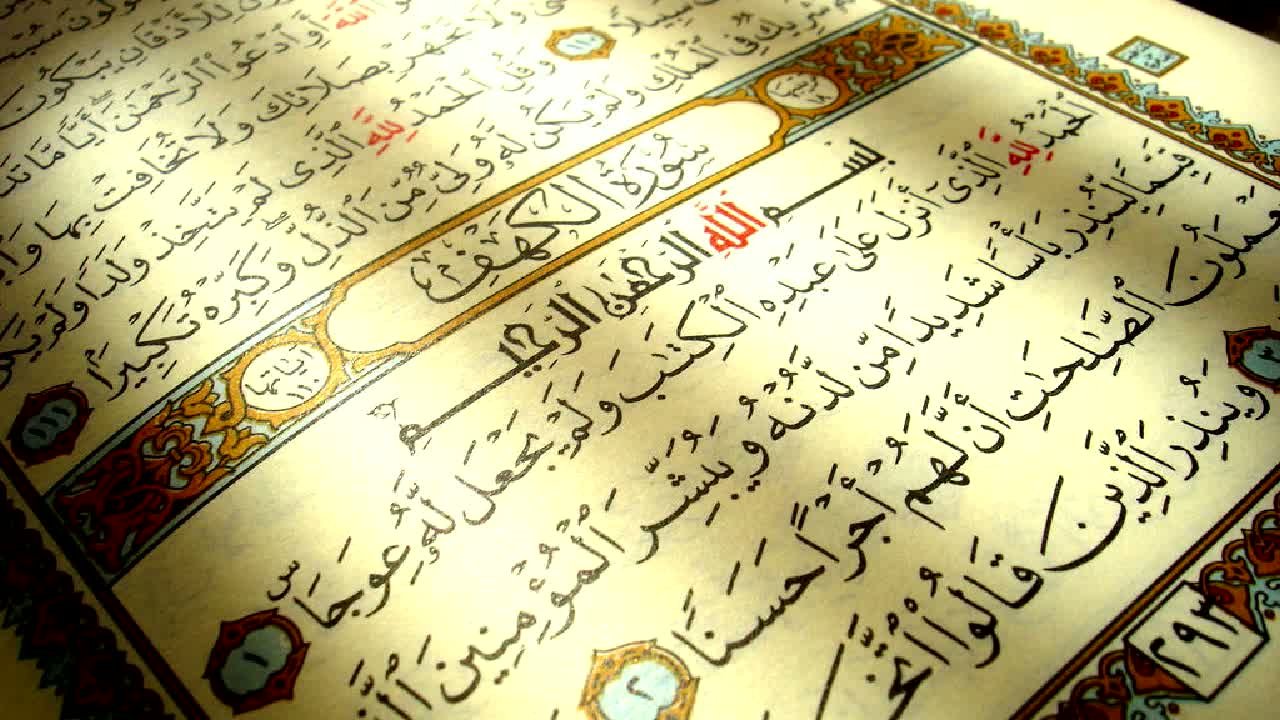 لِلْأَذْقَانِ يَبْكُونَ
ٱللَّهَ أَوِ ٱدْعُوا۟ ٱلرَّحْمَٰنَ أَيًّا مَّا
وَلَا تَجْهَرْ بِصَلَاتِكَ وَلَا تُخَافِتْ بِهَا
سَبِيلًا ١١٠ وَقُلِ ٱلْحَمْدُ لِلَّهِ ٱلَّذِى لَمْ يَتَّخِذْ وَلَدًا وَلَمْ يَكُن
شَرِيكٌ فِى ٱلْمُلْكِ وَلَمْ يَكُن لَّهُۥ وَلِىٌّ مِّنَ ٱلذُّلِّ وَكَبِّرْهُ تَكْبِيرًا ١١١
سُورَةُ الكَهْفِ آياتها ١١٠
بِسْمِ ٱللَّهِ ٱلرَّحْمَٰنِ ٱلرَّحِيمِ
ٱلْحَمْدُ لِلَّهِ ٱلَّذِىٓ أَنزَلَ عَلَىٰ عَبْدِهِ ٱلْكِتَٰبَ وَلَمْ يَجْعَل لَّهُۥ عِوَجَاۜ ١
قَيِّمًا لِّيُنذِرَ بَأْسًا شَدِيدًا مِّن لَّدُنْهُ وَيُبَشِّرَ ٱلْمُؤْمِنِينَ
يَعْمَلُونَ ٱلصَّٰلِحَٰتِ أَنَّ لَهُمْ أَجْرًا حَسَنًا ٢
٣ وَيُنذِرَ ٱلَّذِينَ قَالُوا۟
٢٩٣